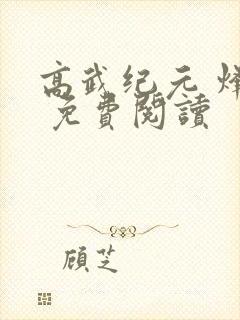 高武纪元 烽
免費閱讀
顾芝